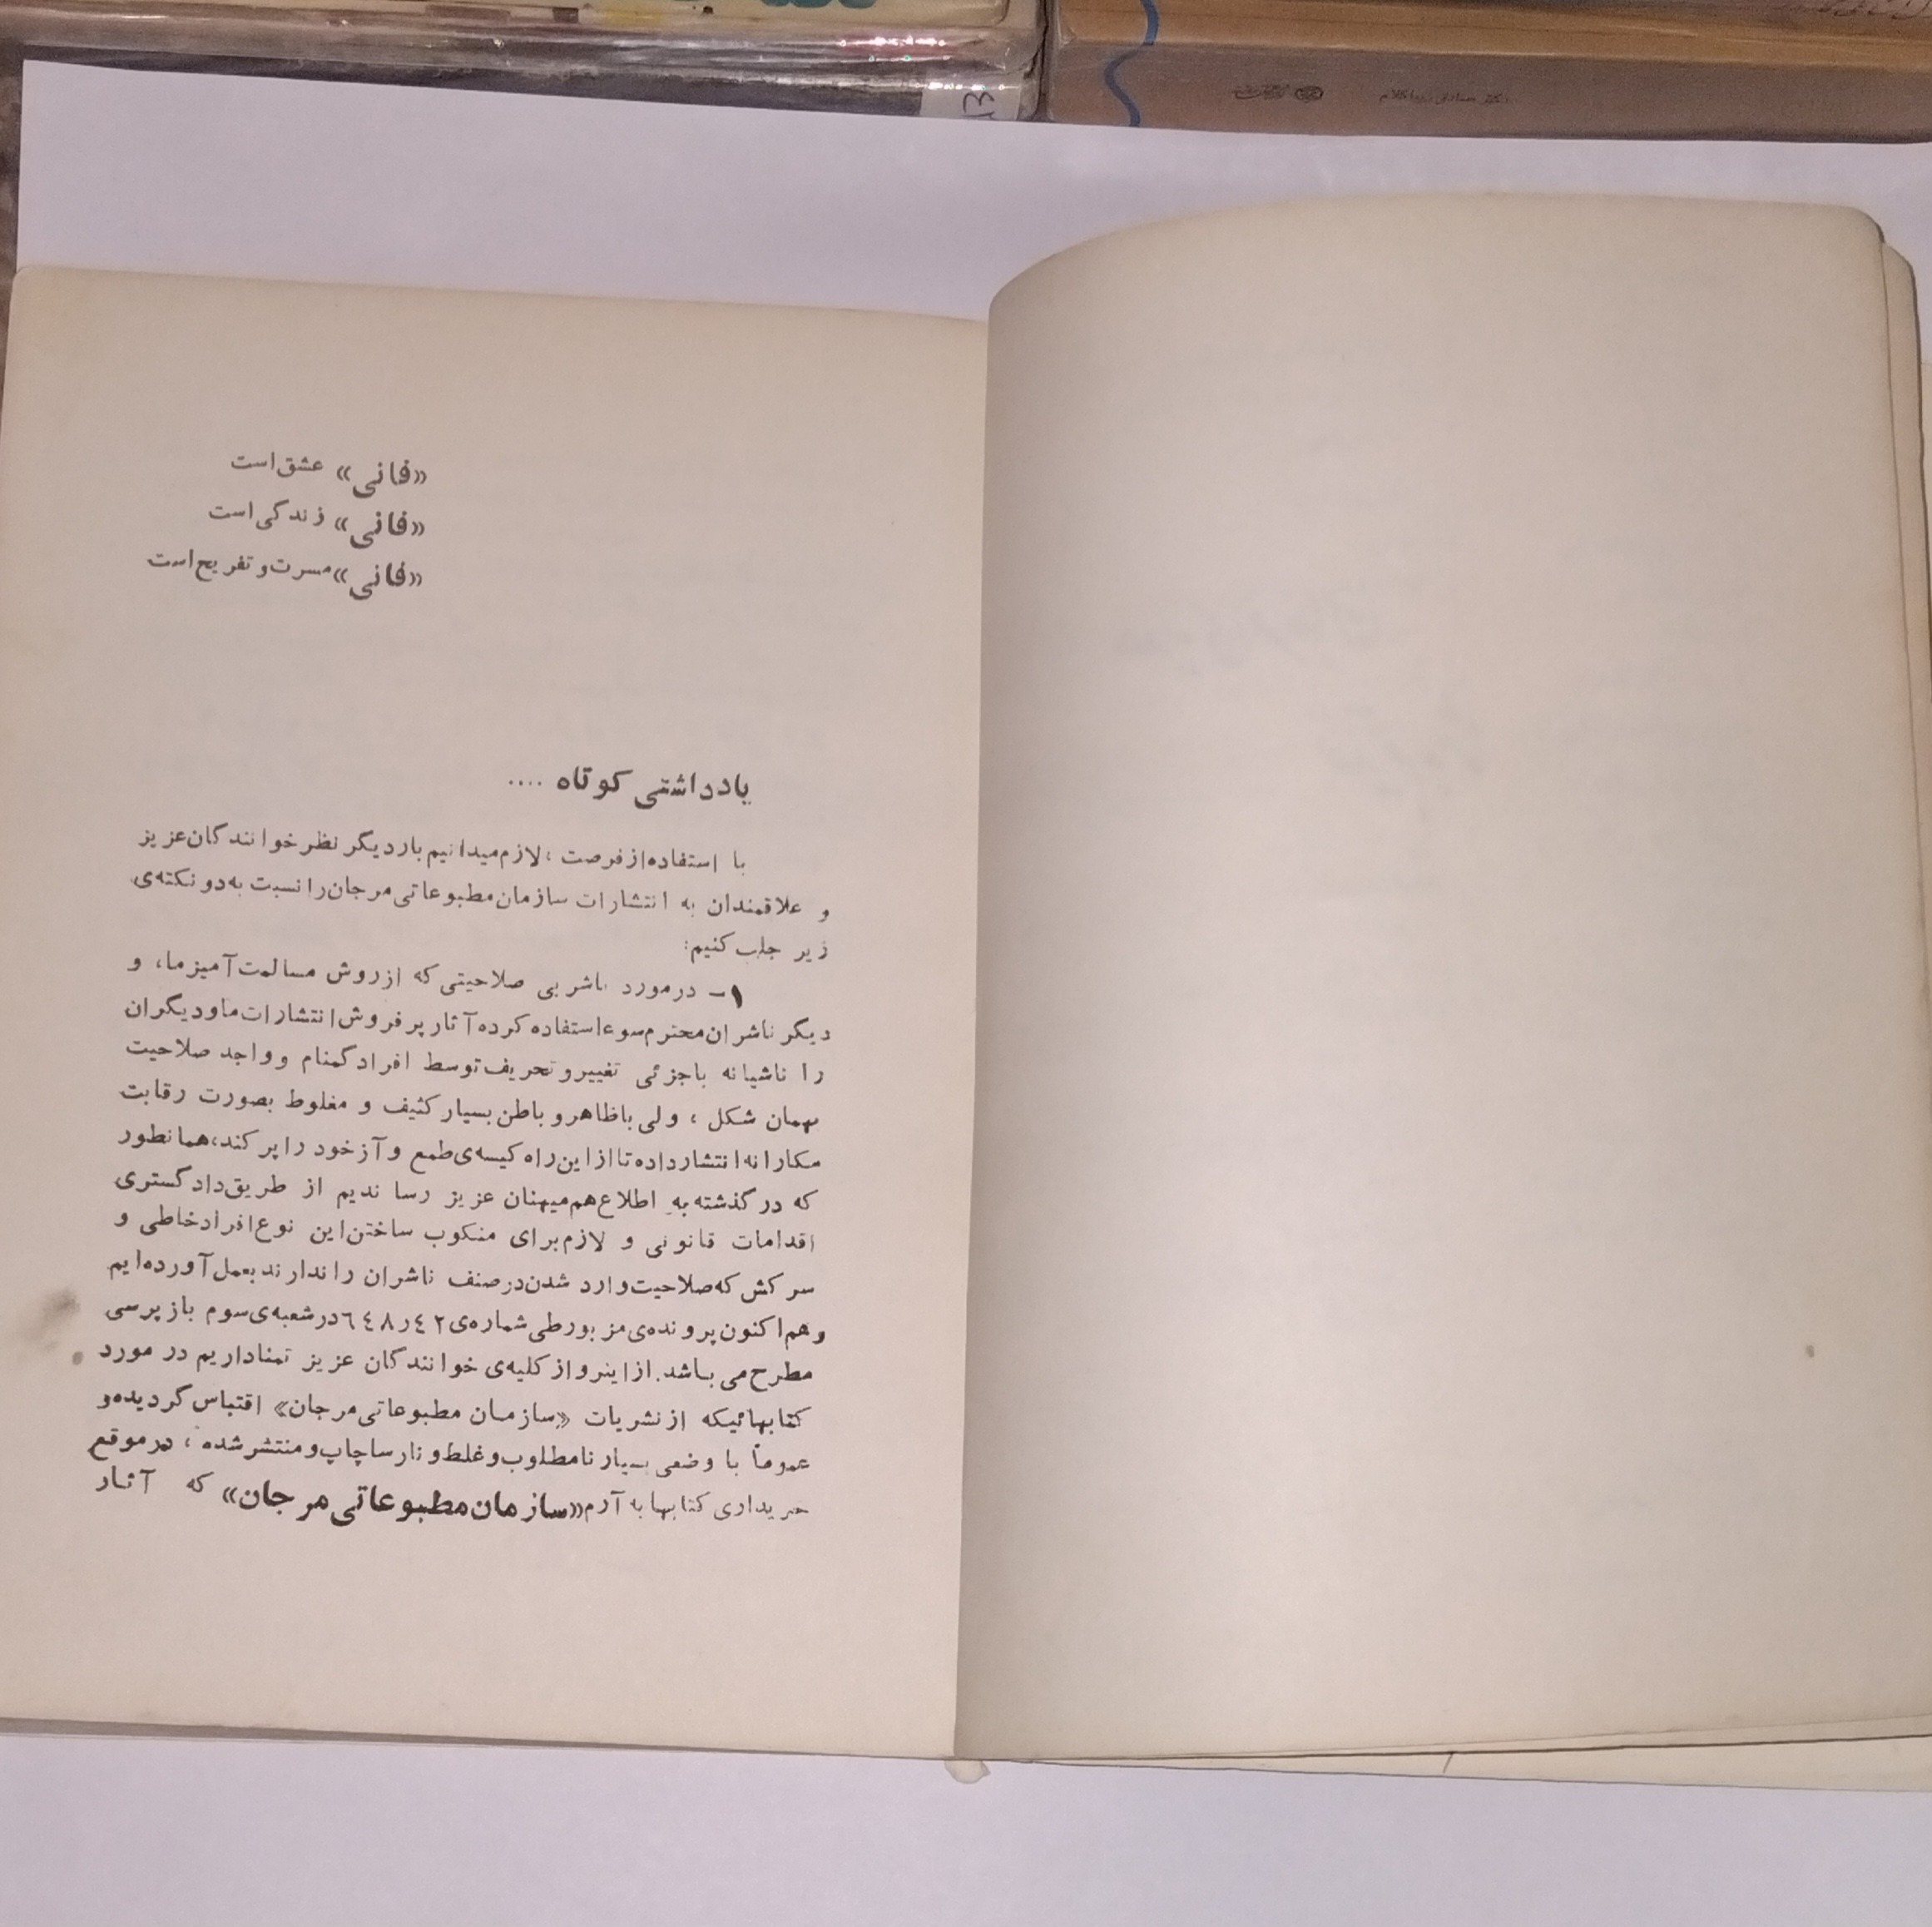 «فانی» عشق‌است
«فانی» زندگی‌است
«فانی» مسرت‌و تفریح‌است
یادداشتی کوتاه ....
با استفاده‌از فرصت ، لازم‌میدانیم باردیگر نظر خوانندگان‌عزیز
و علاقمندان به انتشارات سازمان‌مطبوعاتی‌مرجان‌را نسبت به‌دو نکته‌ی
زیر جلب‌کنیم:
۱- درمورد ناشر بی صلاحیتی‌که ازروش مسالمت‌آمیزما، و
دیگر ناشران‌محترم‌سوءاستفاده‌کرده‌آثار پرفروش‌انتشارات‌ماودیگران
را ناشیانه باجزئی تغییرو تحریف‌توسط افرادگمنام وواجد صلاحیت
بهمان شکل ، ولی باظاهرو باطن بسیارکثیف و مغلوط بصورت رقابت
مکارانه‌انتشارداده‌تاازاین‌راه‌کیسه‌ی‌طمع وآزخود راپرکند،همانطور
که درگذشته به اطلاع‌هم‌میهنان عزیز رساندیم از طریق‌دادگستری
اقدامات قانونی و لازم‌برای منکوب ساختن‌این نوع‌افرادخاطی و
سرکش‌که‌صلاحیت‌وارد شدن‌درصنف ناشران راندارند بعمل‌آورده‌ایم
وهم‌اکنون‌پرونده‌ی‌مزبورطی‌شماره‌ی ٤٢ر٦٤٨ درشعبه‌ی‌سوم بازپرسی
مطرح‌می‌باشد. ازاینرو ازکلیه‌ی خوانندگان عزیز تمناداریم در مورد
کتابهائیکه ازنشریات «سازمان مطبوعاتی‌مرجان» اقتباس‌گردیده‌و
عموماً با وضعی بسیار نامطلوب‌وغلط‌ونارساچاپ‌ومنتشرشده ، درموقع
خریداری کتابها به آرم«سازمان‌مطبوعاتی‌مرجان» که آثار